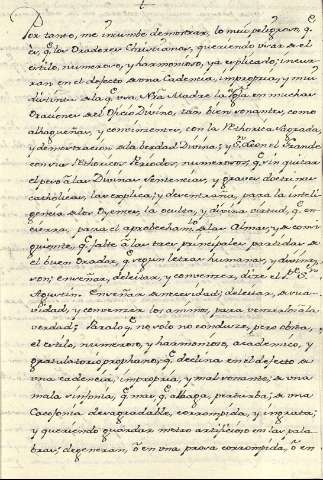 Por tanto, me incumbe demostrar, lo mui peligroso, q.
es, q. los Oradores Christianos, queriendo usar de el
estilo, numeroso, y harmonioso, ya explicado; incur-
ran en el defecto de una Cadencia, impropria, y mui
distinta de la q. usa Nra Madre la Ygla en muchas
Oraciones de el Oficio Divino, tan bien sonantes, como
alhagueñas, y convincentes, con la Rethorica Sagrada,
y demostracion de la verdad Divina; y
con sus Rethoricos Periodos, numerosos, q. sin quitar
el peso à las Divinas Sentencias, y graves doctrinas
catholicas, las explica; y desentraña, para la inteli-
gencia de los Oyentes, la oculta, y divina virtud, q. en-
cierra, para el aprovecham.to de las Almas; y de consi-
guiente, q. falte à las tres principales partidas de
el buen Orador, q. segun letras humanas, y divinas,
son; enseñar, deleitar, y convencer, dize el
Agustin. Enseñar de necesidad; deleitar, de sua-
vidad, y convencer los animos, para traerlos à la
verdad; Para lo q. no solo no conduce, pero obsta,
el estilo, numeroso, y harmonioso, academico, y
gratulatorio prophano; q. declina en el defecto de
una cadencia, impropria, y mal sonante, de una
mala sinfonia, q. mas, q. alhaga, perturba; de una
Cacofonia desagradable, corrompida, y ingrata;
y queriendo guardar metro artificioso en las pala-
bras; degeneran, ò en una prosa corrompida, ò en